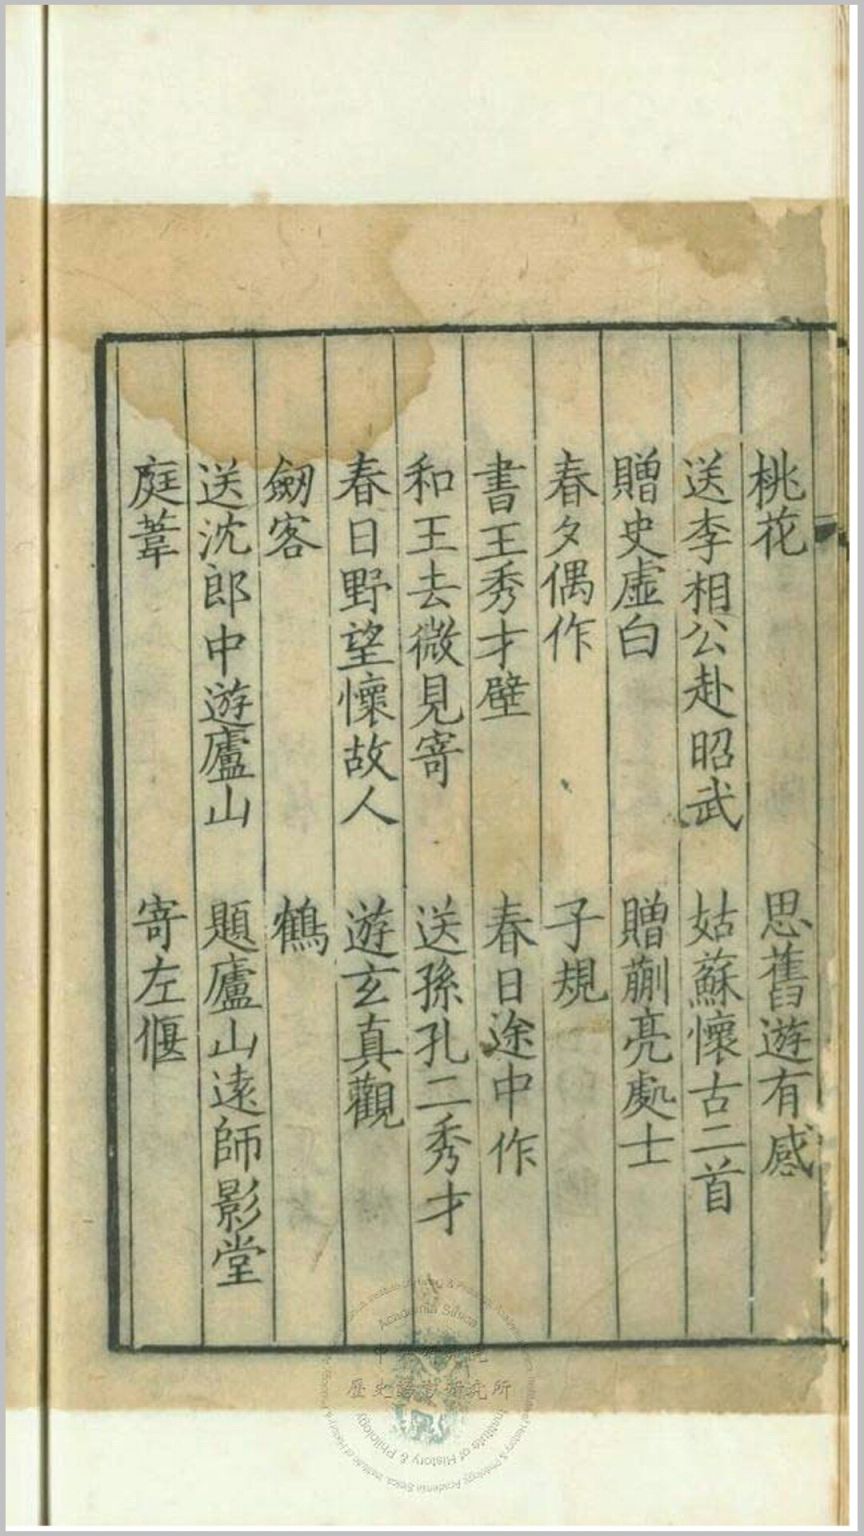 桃花　思舊遊有感
送李相公赴昭武　姑蘇懷古二首
贈史虛白　贈蒯亮處士
春夕偶作　子規
書王秀才壁　春日途中作
和王去微見寄　送孫孔二秀才
春日野望懷故人　遊玄真觀
劒客　鶴
送沈郎中遊廬山　題廬山遠師影堂
庭葦　寄左偃
Academia Sinica
歷史語言研究所
Institute of History & Philology